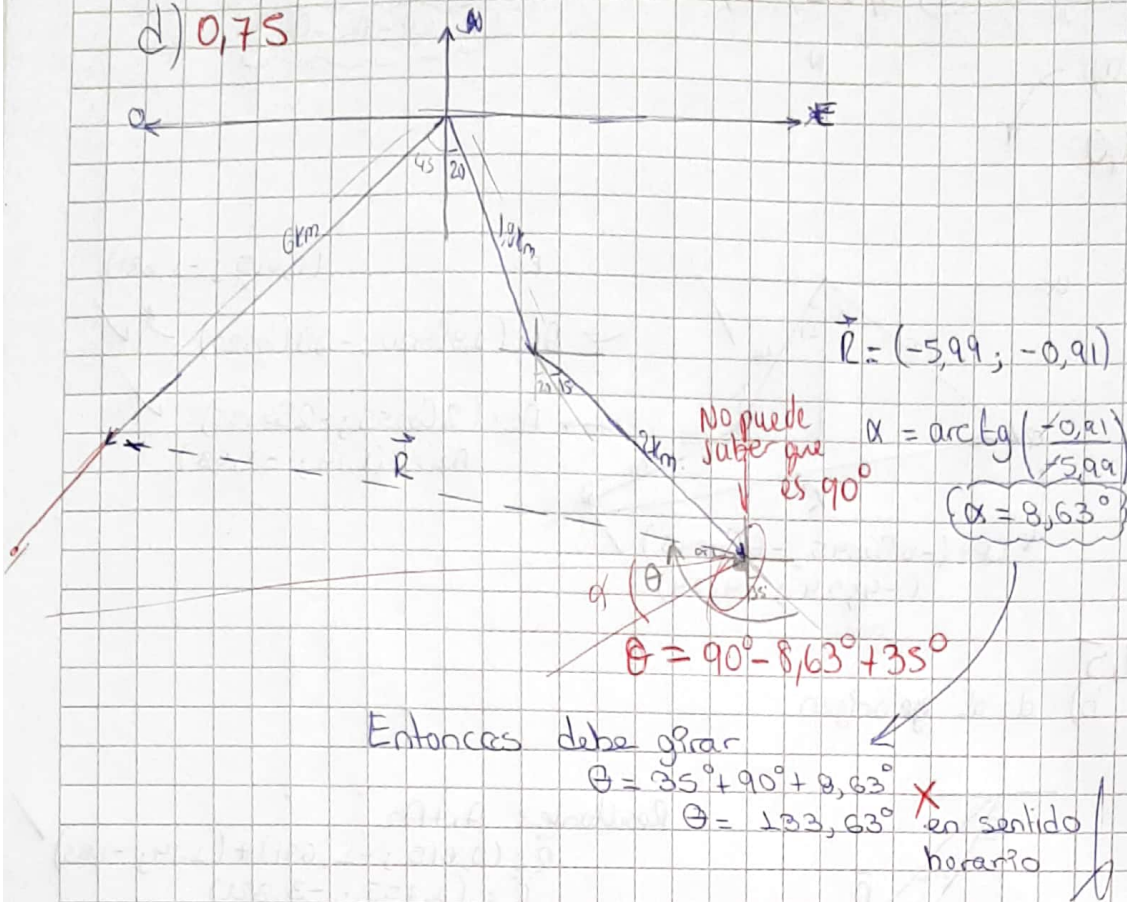 d) 0,75
N
O
E
45
20
6km
1,9km
R = (-5,99 ; -0,91)
20
15
No puede
saber que
es 90°
α = arctg(-0,91/-5,99)
2km
R
α = 8,63°
α
θ
α
35
θ = 90° - 8,63° + 35°
Entonces debe girar
θ = 35° + 90° + 8,63°
θ = 133,63° X en sentido
horario